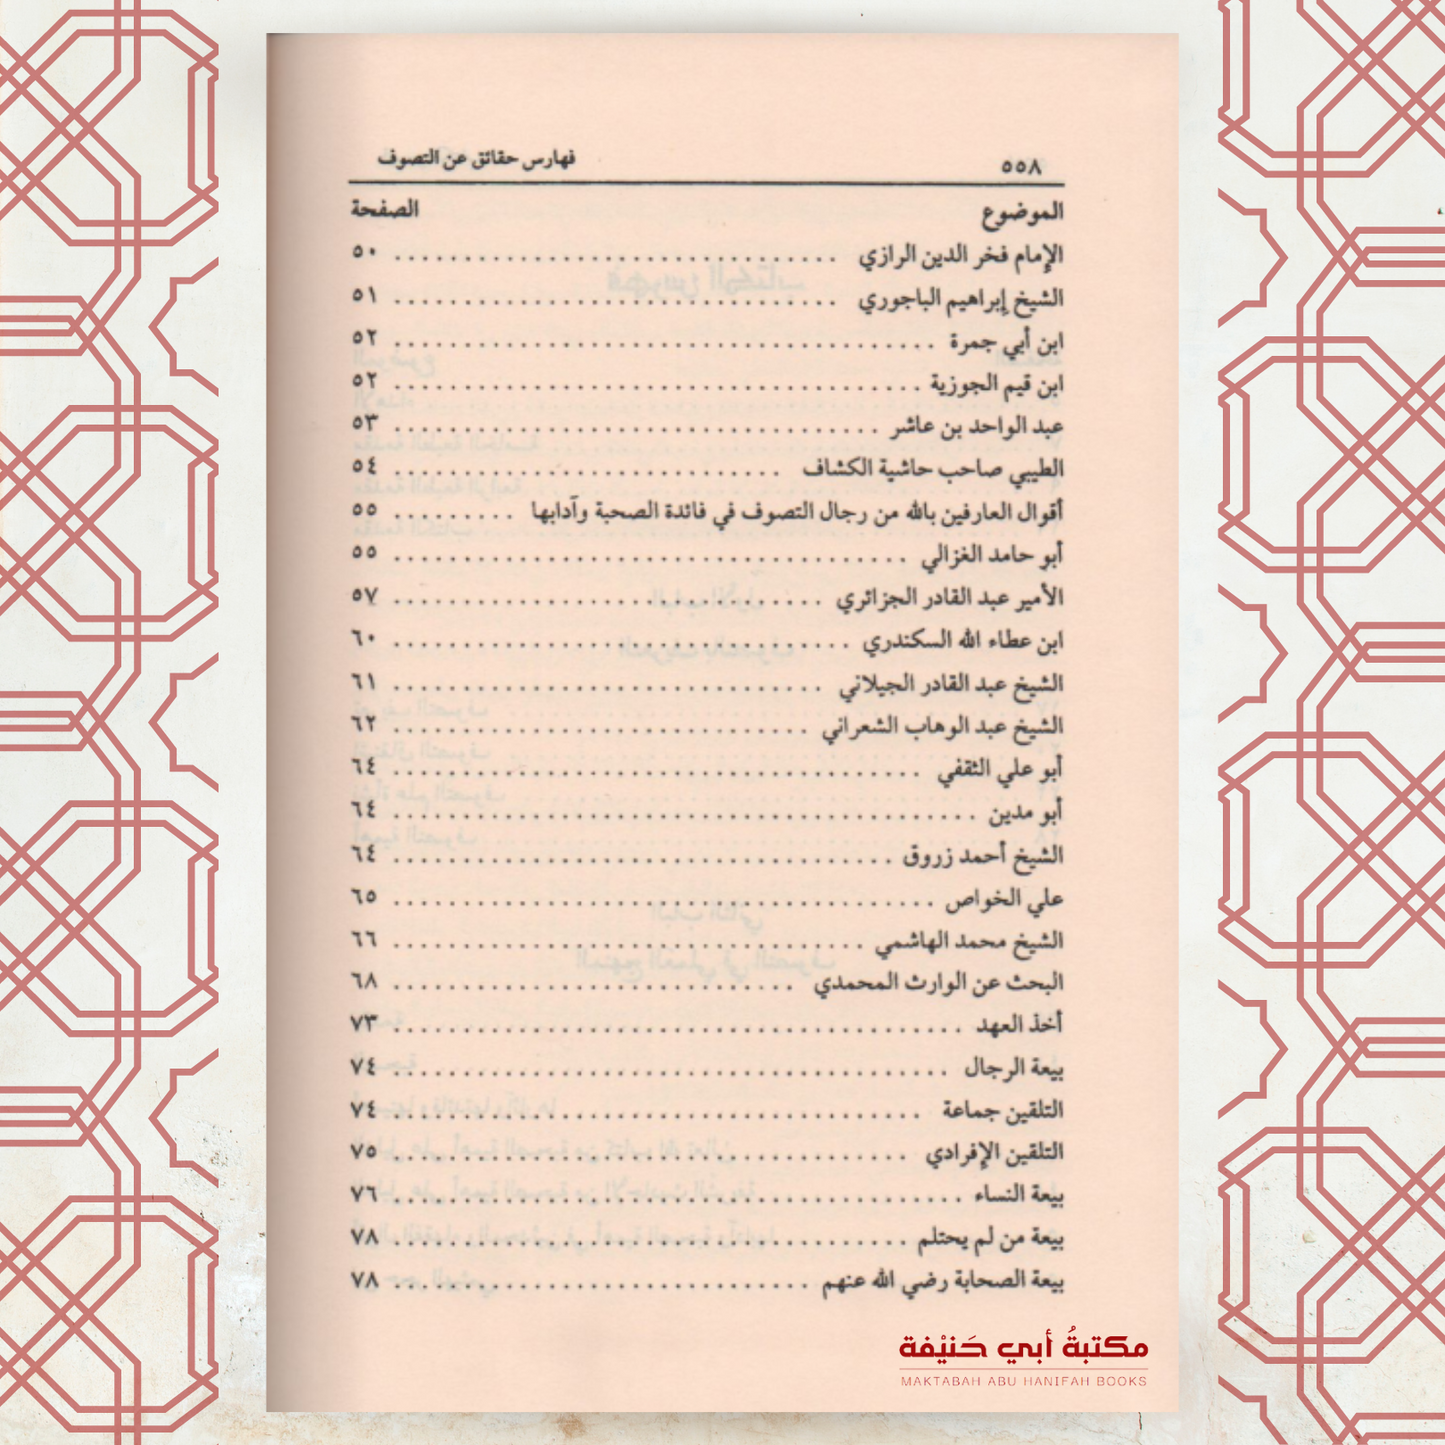 ٥٥٨ فهارس حقائق عن التصوف
الموضوع الصفحة
الإمام فخر الدين الرازي ................................ ٥٠
الشيخ إبراهيم الباجوري ................................ ٥١
ابن أبي جمرة ....................................... ٥٢
ابن قيم الجوزية ...................................... ٥٢
عبد الواحد بن عاشر ................................... ٥٣
الطيبي صاحب حاشية الكشاف ............................ ٥٤
أقوال العارفين بالله من رجال التصوف في فائدة الصحبة وآدابها ......... ٥٥
أبو حامد الغزالي ..................................... ٥٥
الأمير عبد القادر الجزائري ............................... ٥٧
ابن عطاء الله السكندري ................................. ٦٠
الشيخ عبد القادر الجيلاني ............................... ٦١
الشيخ عبد الوهاب الشعراني .............................. ٦٢
أبو علي الثقفي ...................................... ٦٤
أبو مدين .......................................... ٦٤
الشيخ أحمد زروق .................................... ٦٤
علي الخواص ....................................... ٦٥
الشيخ محمد الهاشمي .................................. ٦٦
البحث عن الوارث المحمدي ............................. ٦٨
أخذ العهد ......................................... ٧٣
بيعة الرجال ........................................ ٧٤
التلقين جماعة ...................................... ٧٤
التلقين الإفرادي ..................................... ٧٥
بيعة النساء ......................................... ٧٦
بيعة من لم يحتلم ..................................... ٧٨
بيعة الصحابة رضي الله عنهم .............................. ٧٨
مكتبةُ أبي حَنيْفة
MAKTABAH ABU HANIFAH BOOKS